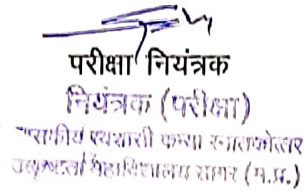 परीक्षा नियंत्रक
नियंत्रक (परीक्षा)
शासकीय स्वशासी कन्या स्नातकोत्तर
उत्कृष्टता महाविद्यालय सागर (म.प्र.)